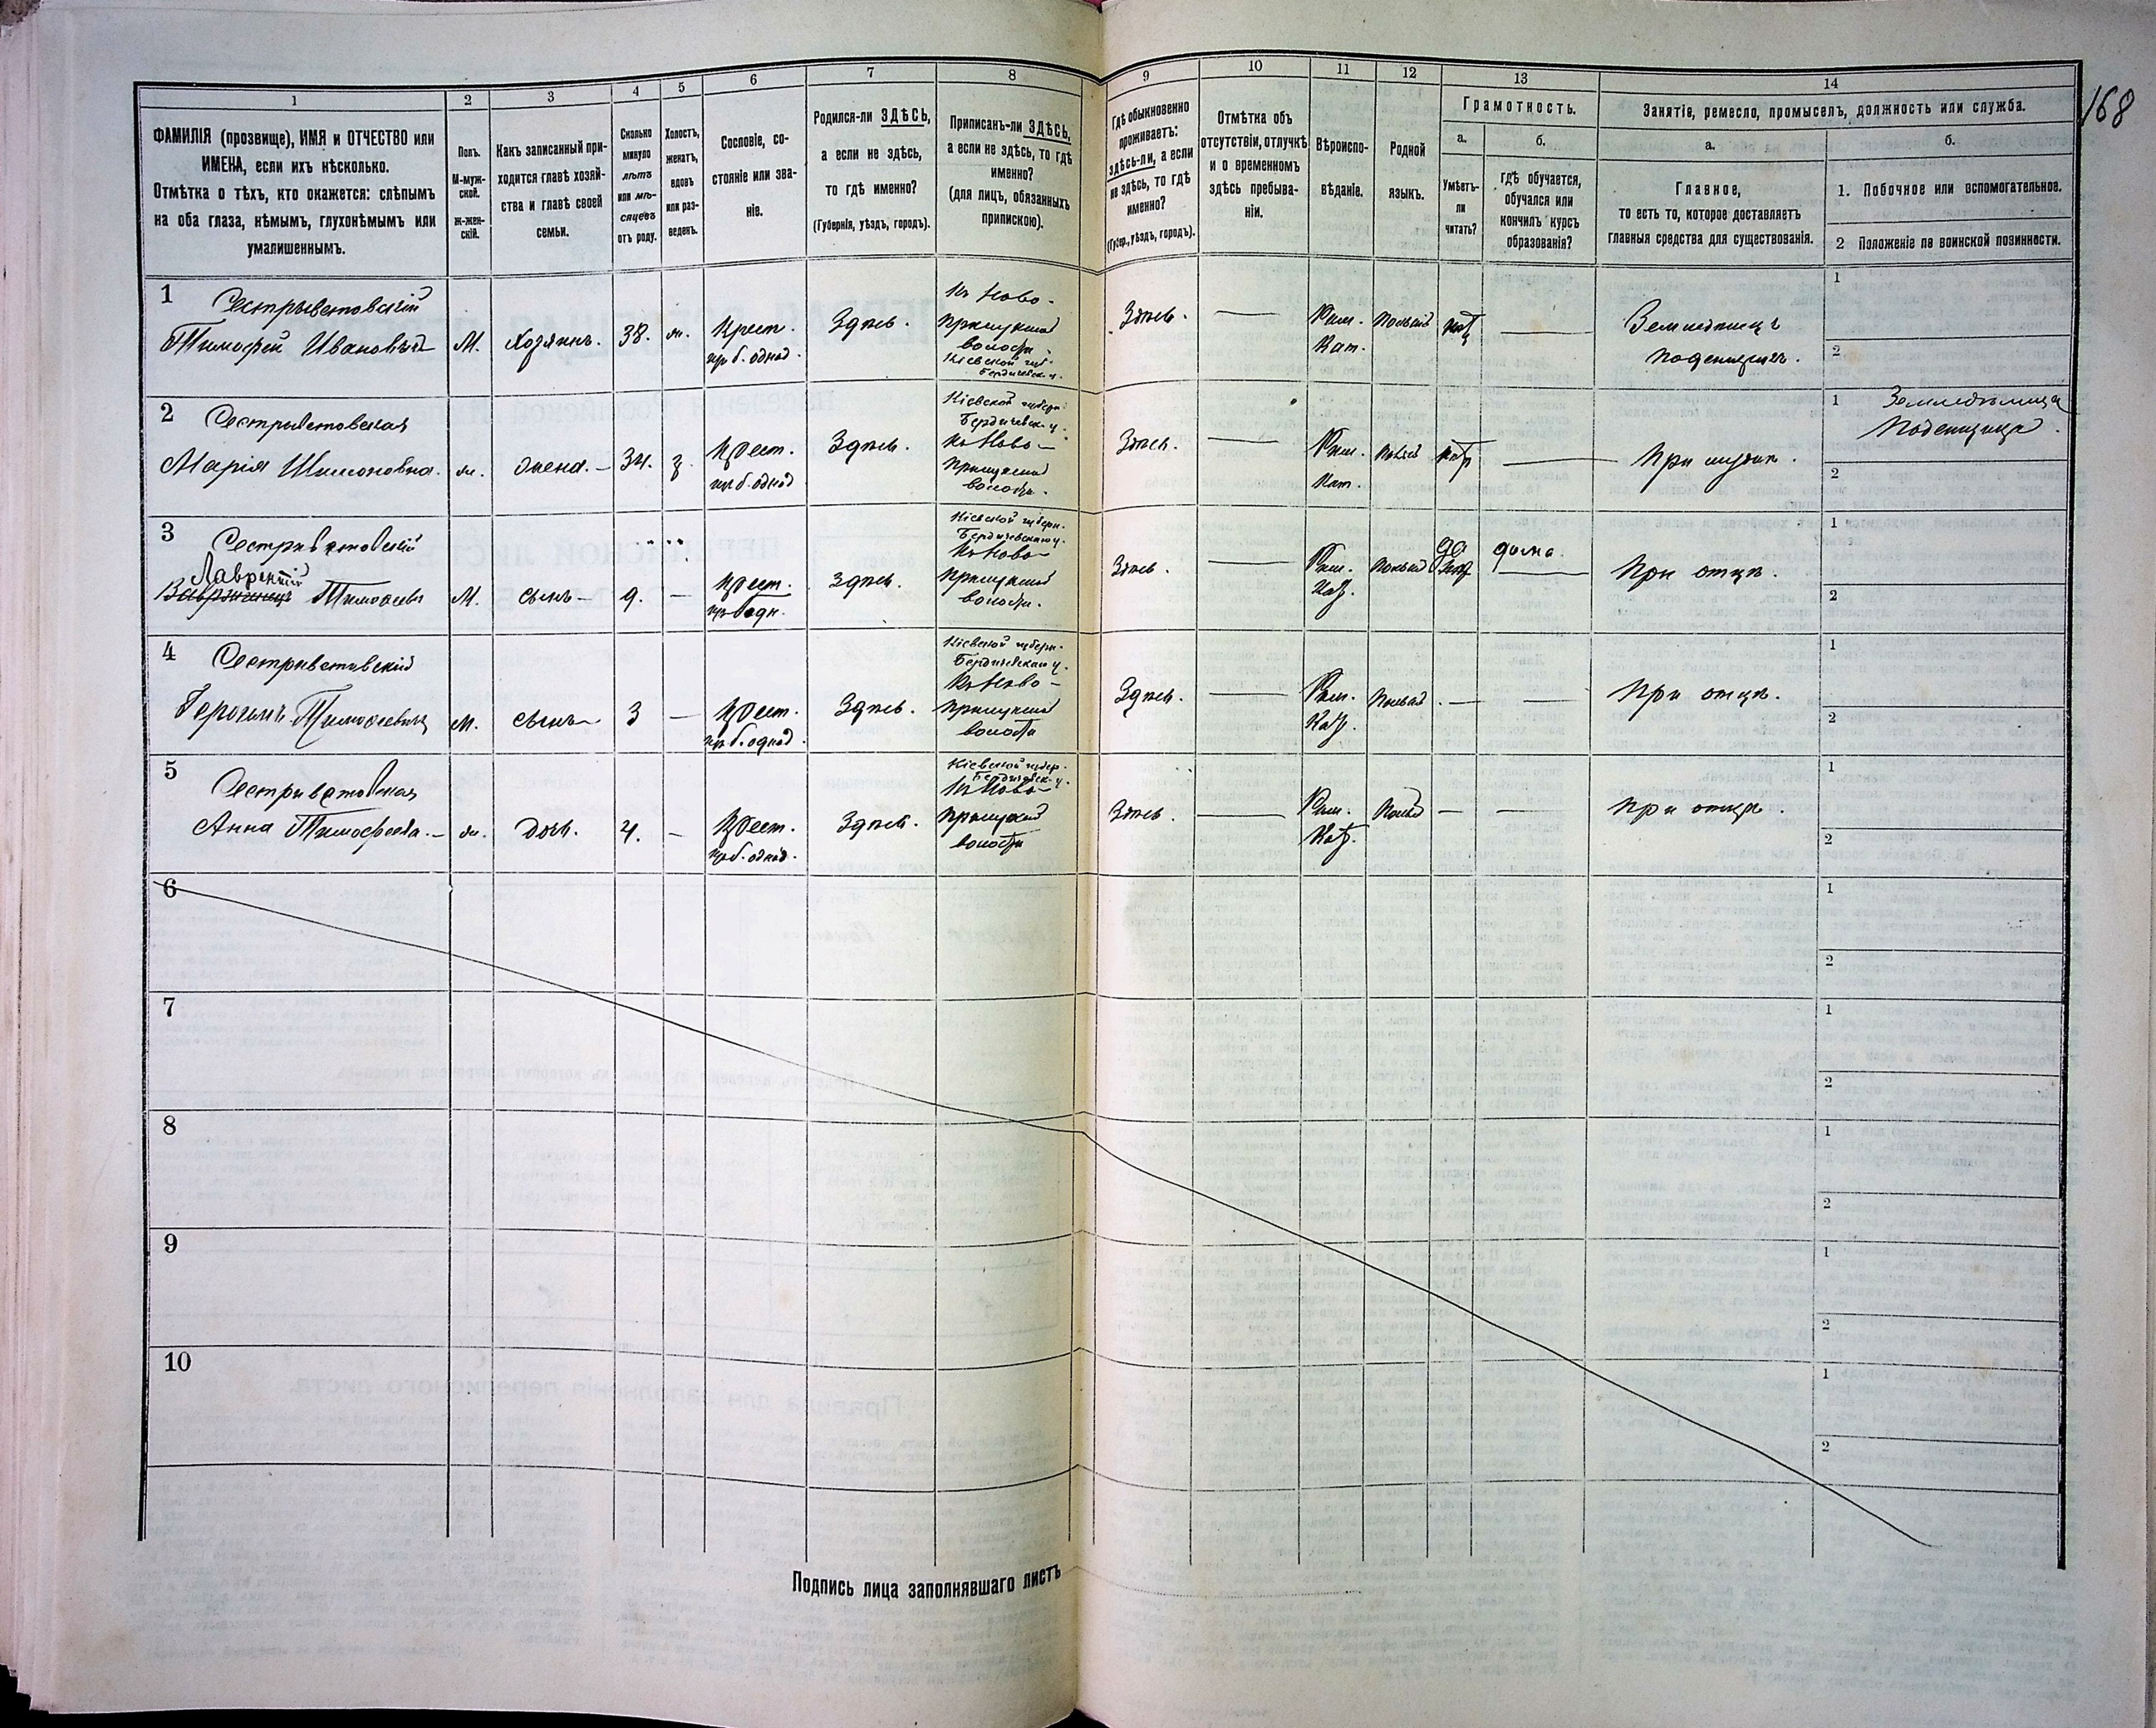 168
1
2
3
4
5
6
7
8
9
10
11
12
13
14
ФАМИЛІЯ (прозвище), ИМЯ и ОТЧЕСТВО или
ИМЕНА, если ихъ нѣсколько.
Отмѣтка о тѣхъ, кто окажется: слѣпымъ
на оба глаза, нѣмымъ, глухонѣмымъ или
умалишеннымъ.
Полъ.
М-муж-
ской.
ж-жен-
скій.
Какъ записанный при-
ходится главѣ хозяй-
ства и главѣ своей
семьи.
Сколько
минуло
лѣтъ
или мѣ-
сяцевъ
отъ роду.
Холостъ,
женатъ,
вдовъ
или раз-
веденъ.
Сословіе, со-
стояніе или зва-
ніе.
Родился-ли ЗДѢСЬ,
а если не здѣсь,
то гдѣ именно?
(Губернія, уѣздъ, городъ).
Приписанъ-ли ЗДѢСЬ,
а если не здѣсь, то гдѣ
именно?
(для лицъ, обязанныхъ
припискою).
Гдѣ обыкновенно
проживаетъ:
здѣсь-ли, а если
не здѣсь, то гдѣ
именно?
(Губер., уѣздъ, городъ).
Отмѣтка объ
отсутствіи, отлучкѣ
и о временномъ
здѣсь пребыва-
ніи.
Вѣроиспо-
вѣданіе.
Родной
языкъ.
Грамотность.
а.
Умѣетъ-
ли
читать?
б.
гдѣ обучается,
обучался или
кончилъ курсъ
образованія?
Занятіе, ремесло, промыселъ, должность или служба.
а.
Главное,
то есть то, которое доставляетъ
главныя средства для существованія.
б.
1. Побочное или вспомогательное.
2 Положеніе по воинской повинности.
1
Тимофей Ивановъ
М.
Хозяинъ.
38.
ж.
Крест.
из б. однод.
Здѣсь.
Къ Ново-
волости
Кіевской губ.
Бердичевск. у.
Здѣсь.
—
Рим.
Кат.
Польскій
нѣт
—
Поденщикъ.
1
2
2
Сестрывитовская
Марія Шимоновна.
ж.
жена.
34.
з.
Крест.
из б. однод
Здѣсь.
Кіевской губерн.
Бердичевск. у.
Къ Ново-
волости.
Здѣсь.
—
Рим.
Кат.
нѣт
—
При мужѣ.
1 Земледѣлица
Поденщица.
2
3
Лаврентій
Тимофеевъ
М.
сынъ-
9.
—
Крест.
Здѣсь.
Кіевской губерн.
Къ Ново-
волости.
Здѣсь.
—
Рим.
Кат.
да
дома.
При отцѣ.
1
2
4
Тимофеевичъ
М.
сынъ-
3
—
Крест.
из б. однод.
Здѣсь.
Кіевской губерн.
Къ Ново-
волости
Здѣсь.
—
Рим.
Кат.
—
—
При отцѣ.
1
2
5
Анна Тимофеева.-
ж.
Дочь.
4.
—
Крест.
из б. однод.
Здѣсь.
Кіевской губер.
Бердичевск. у.
Къ Ново-
волости
Здѣсь.
—
Рим.
Кат.
—
—
При отцѣ.
1
2
6
1
2
7
1
2
8
1
2
9
1
2
10
1
2
Подпись лица заполнявшаго листъ